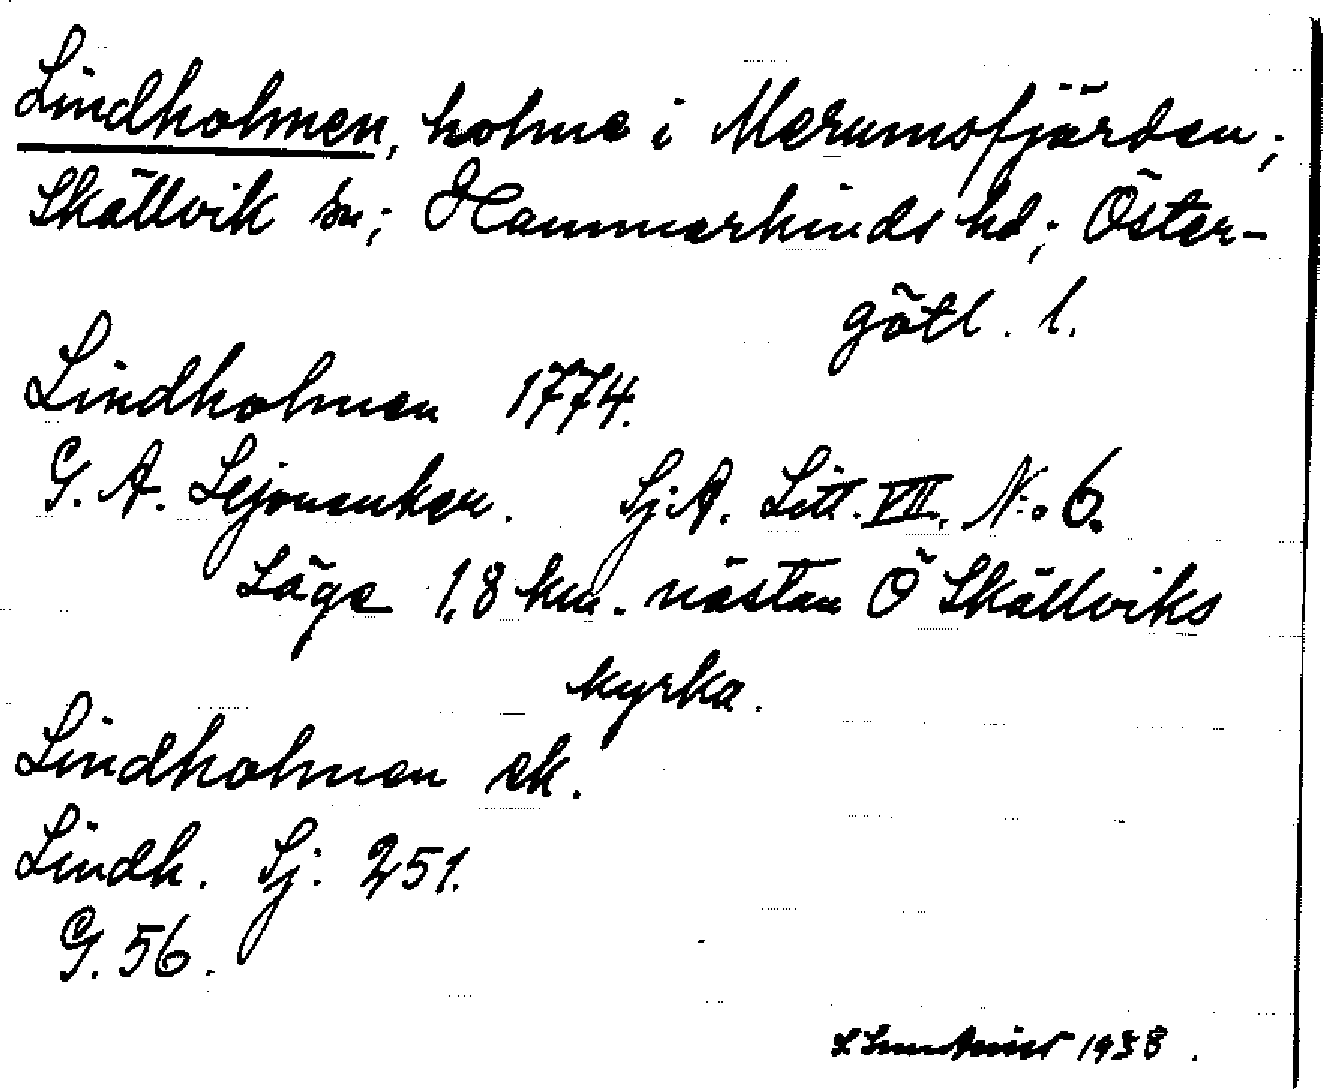 Lindholmen, holme i Merumsfjärden;
Skällvik sn; Hammarkinds hd; Öster-
götl. l.
Lindholmen 1774.
G. A. Lejonanker. Sj.A. Litt. VII. N:o 6.
Läge 1,8 km. nästan Ö Skällviks
kyrka.
Lindholmen ek.
Lindh. Sj. 251.
G. 56.
1938.